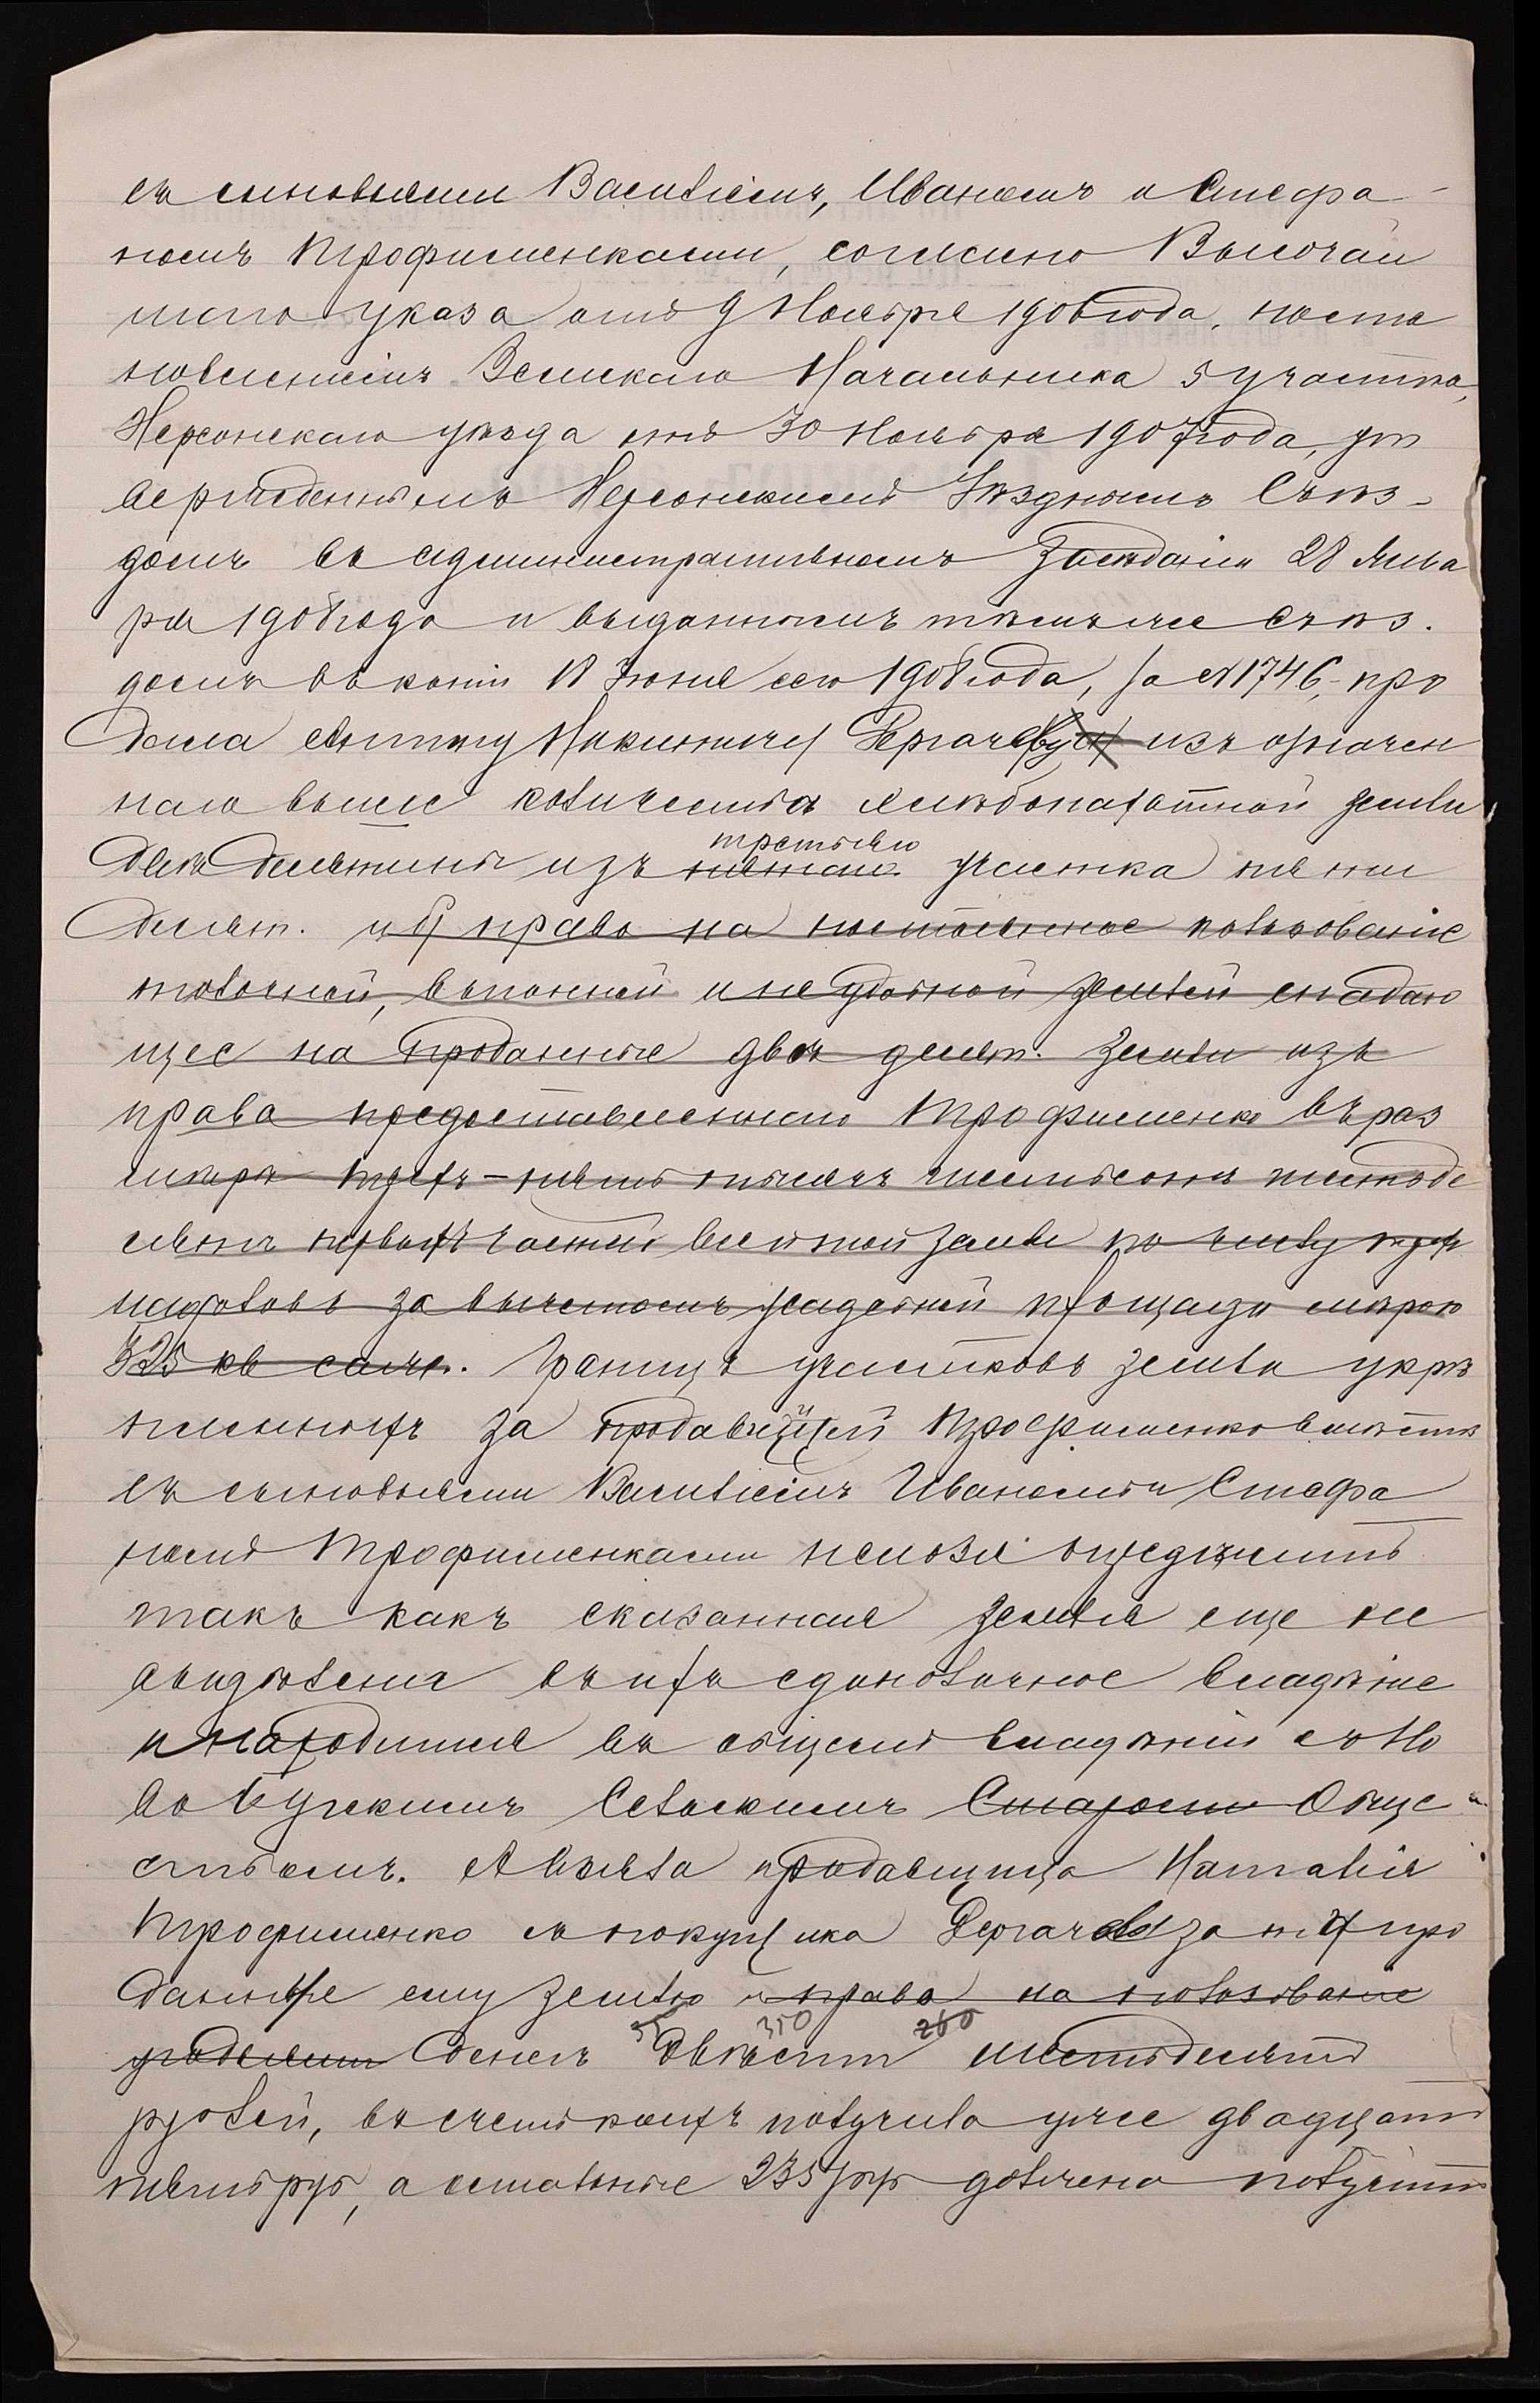 съ сыновьями Василіемъ, Иваномъ и Стефа-
номъ Трофименками, согласно Высочай
шаго указа отъ 9 Ноября 1906 года, поста
новленіемъ Земскаго Начальника 5 участка,
Херсонскаго уѣзда отъ 30 Ноября 1907 года, ут
вержденнымъ Херсонскимъ Уѣзднымъ Съѣз-
домъ въ административномъ засѣданіи 28 Янва
ря 1908 года и выданнымъ тѣмъ же Съѣз.
домъ въ копіи 18 Іюня сего 1908 года, за № 1746, про
дала Никитичу Дергачеву изъ означен
наго выше количества хлѣбопахатной земли
двѣ десятины изъ третьяго участка
десят. и право на постоянное пользованіе
толочной, выгонной и неудобной землей спадаю
щее на проданныя двѣ десят. земли изъ
права предоставленнаго Трофименко въ раз
мѣрѣ трехъ-пять тысячъ шестьсотъ шестьде
сятъ первыхъ частей всей той земли по числу трехъ
надѣловъ за вычетомъ усадебной площади мѣрою
325 кв саж. Границъ участковъ земли укрѣ
пленныхъ за продавицей Трофименко вмѣстѣ
съ сыновьями Василіемъ Иваномъ и Стефа
номъ Трофименками нельзя опредѣлить
такъ какъ сказанная земля еще не
выдѣлена въ ихъ единоличное владѣніе
и находится въ общемъ владѣніи съ Но
во Бугскимъ Сельскимъ Старост Обще
ствомъ. А взяла продавщица Наталія
Трофименко съ покупщика Дергачева за про
данную ему землю и право на пользованіе
угодіями денегъ 350 260 двѣсти шестьдесятъ
рублей, въ счетъ коихъ получила уже двадцать
пять руб, а остальные 235 руб должна получить